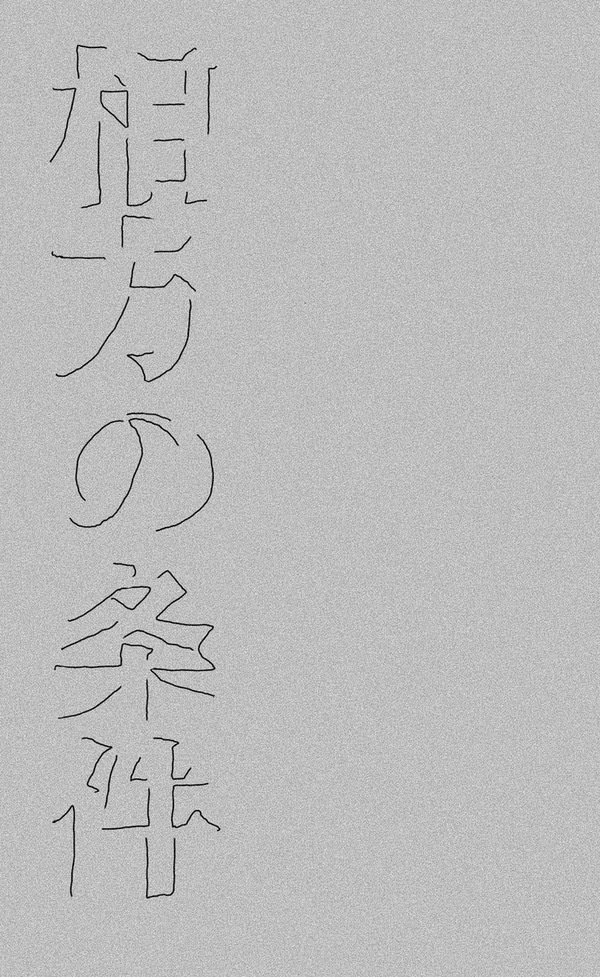 相方の条件